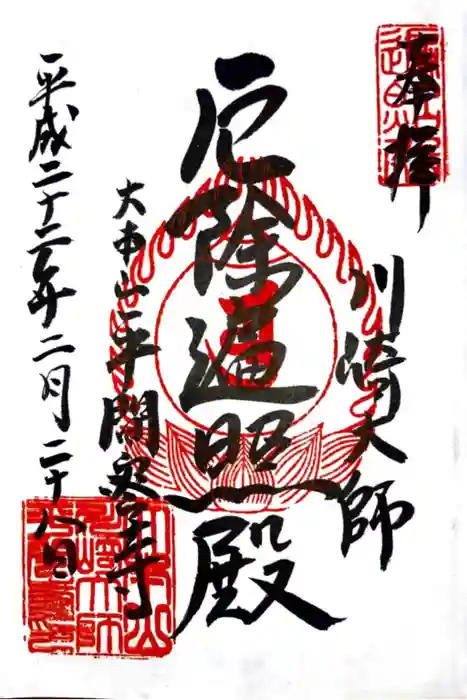 奉拝
川崎大師
厄除遍照殿
大本山平間寺
平成二十二年二月二十八日